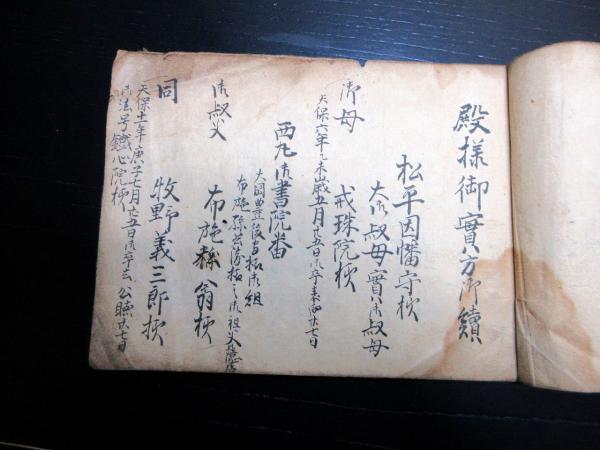 殿様御實方御續
松平因幡守様
大御叔母實御叔母
御母 戒珠院様
天保六年乙未歳五月廿五日御卒去 廿七日
西丸御書院番
大岡豊後守様御組
布施孫兵衛様之御祖父
御叔父 布施 翁様
同 牧野義三郎様
天保十一年庚子七月廿五日御卒去 公聴廿七日
御法号鐵心院様